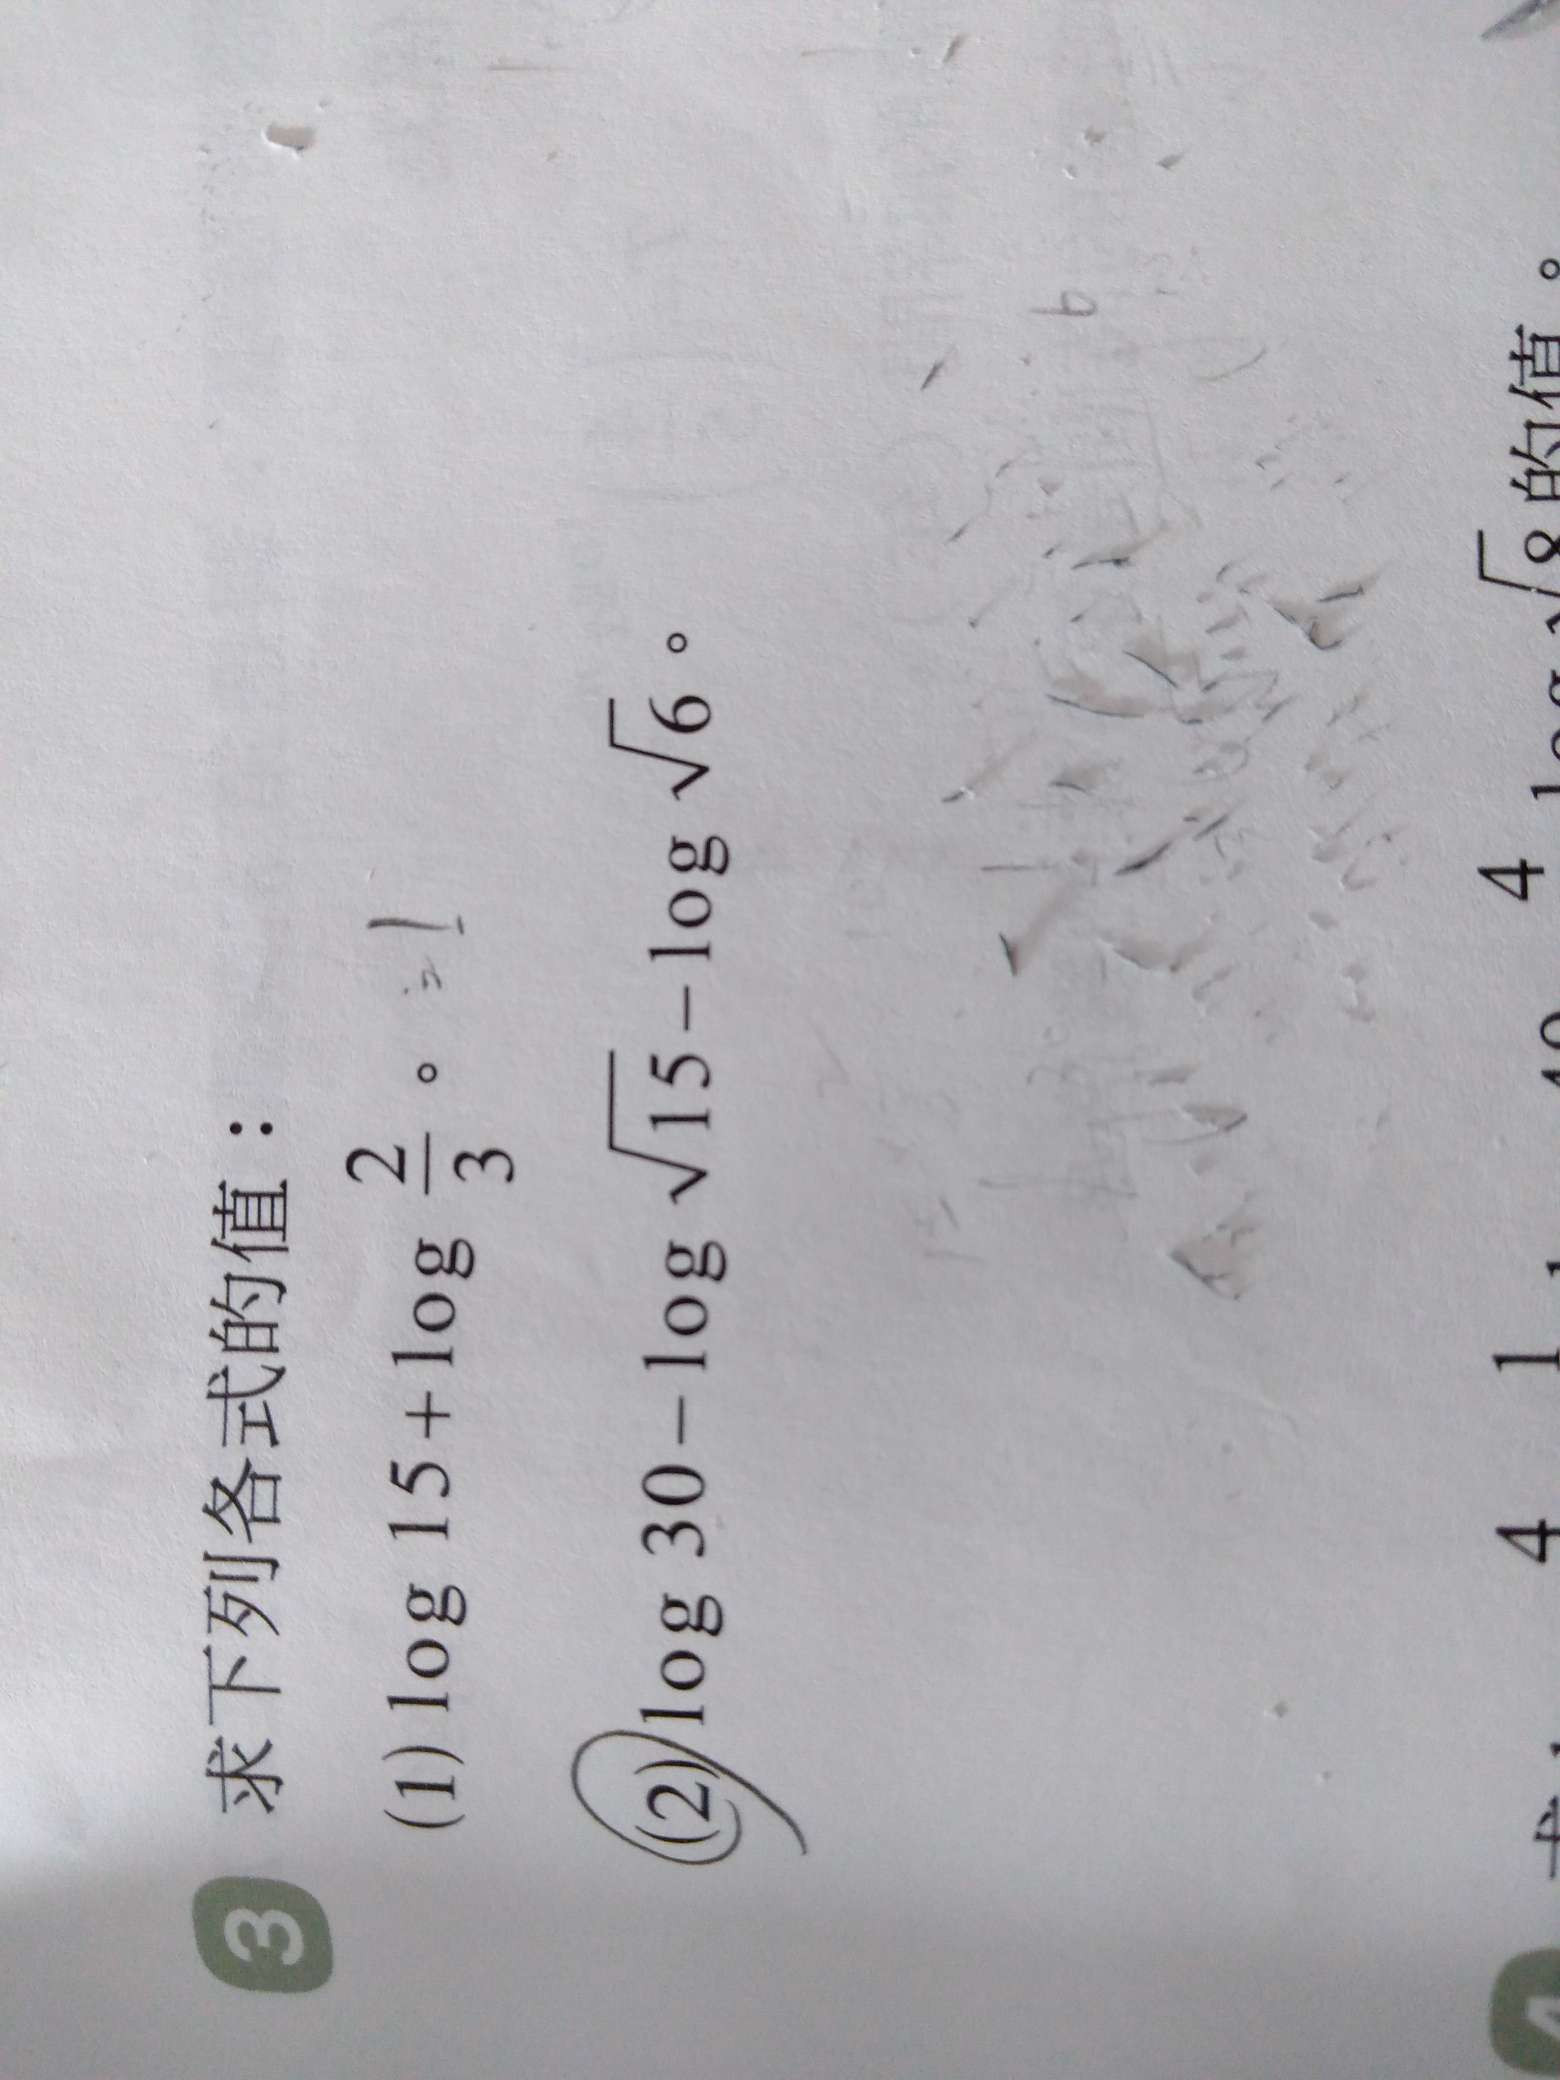 3 求下列各式的值：
(1) log 15 + log 2/3 。 = 1
(2) log 30 − log √15 − log √6 。
4 1 4 log √8 的值。